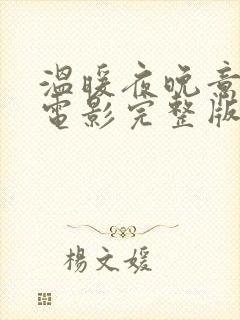 温暖夜晚意
電影完整版
楊文媛